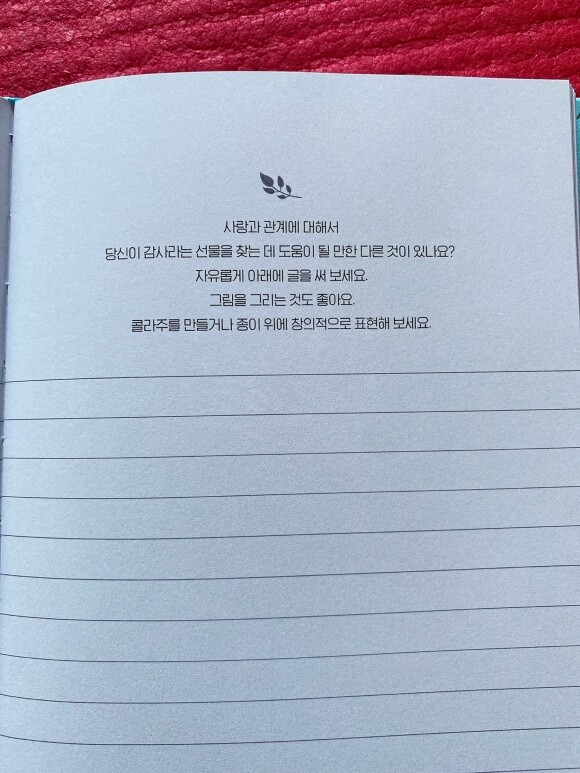 사랑과 관계에 대해서
당신이 감사라는 선물을 찾는 데 도움이 될 만한 다른 것이 있나요?
자유롭게 아래에 글을 써 보세요.
그림을 그리는 것도 좋아요.
콜라주를 만들거나 종이 위에 창의적으로 표현해 보세요.